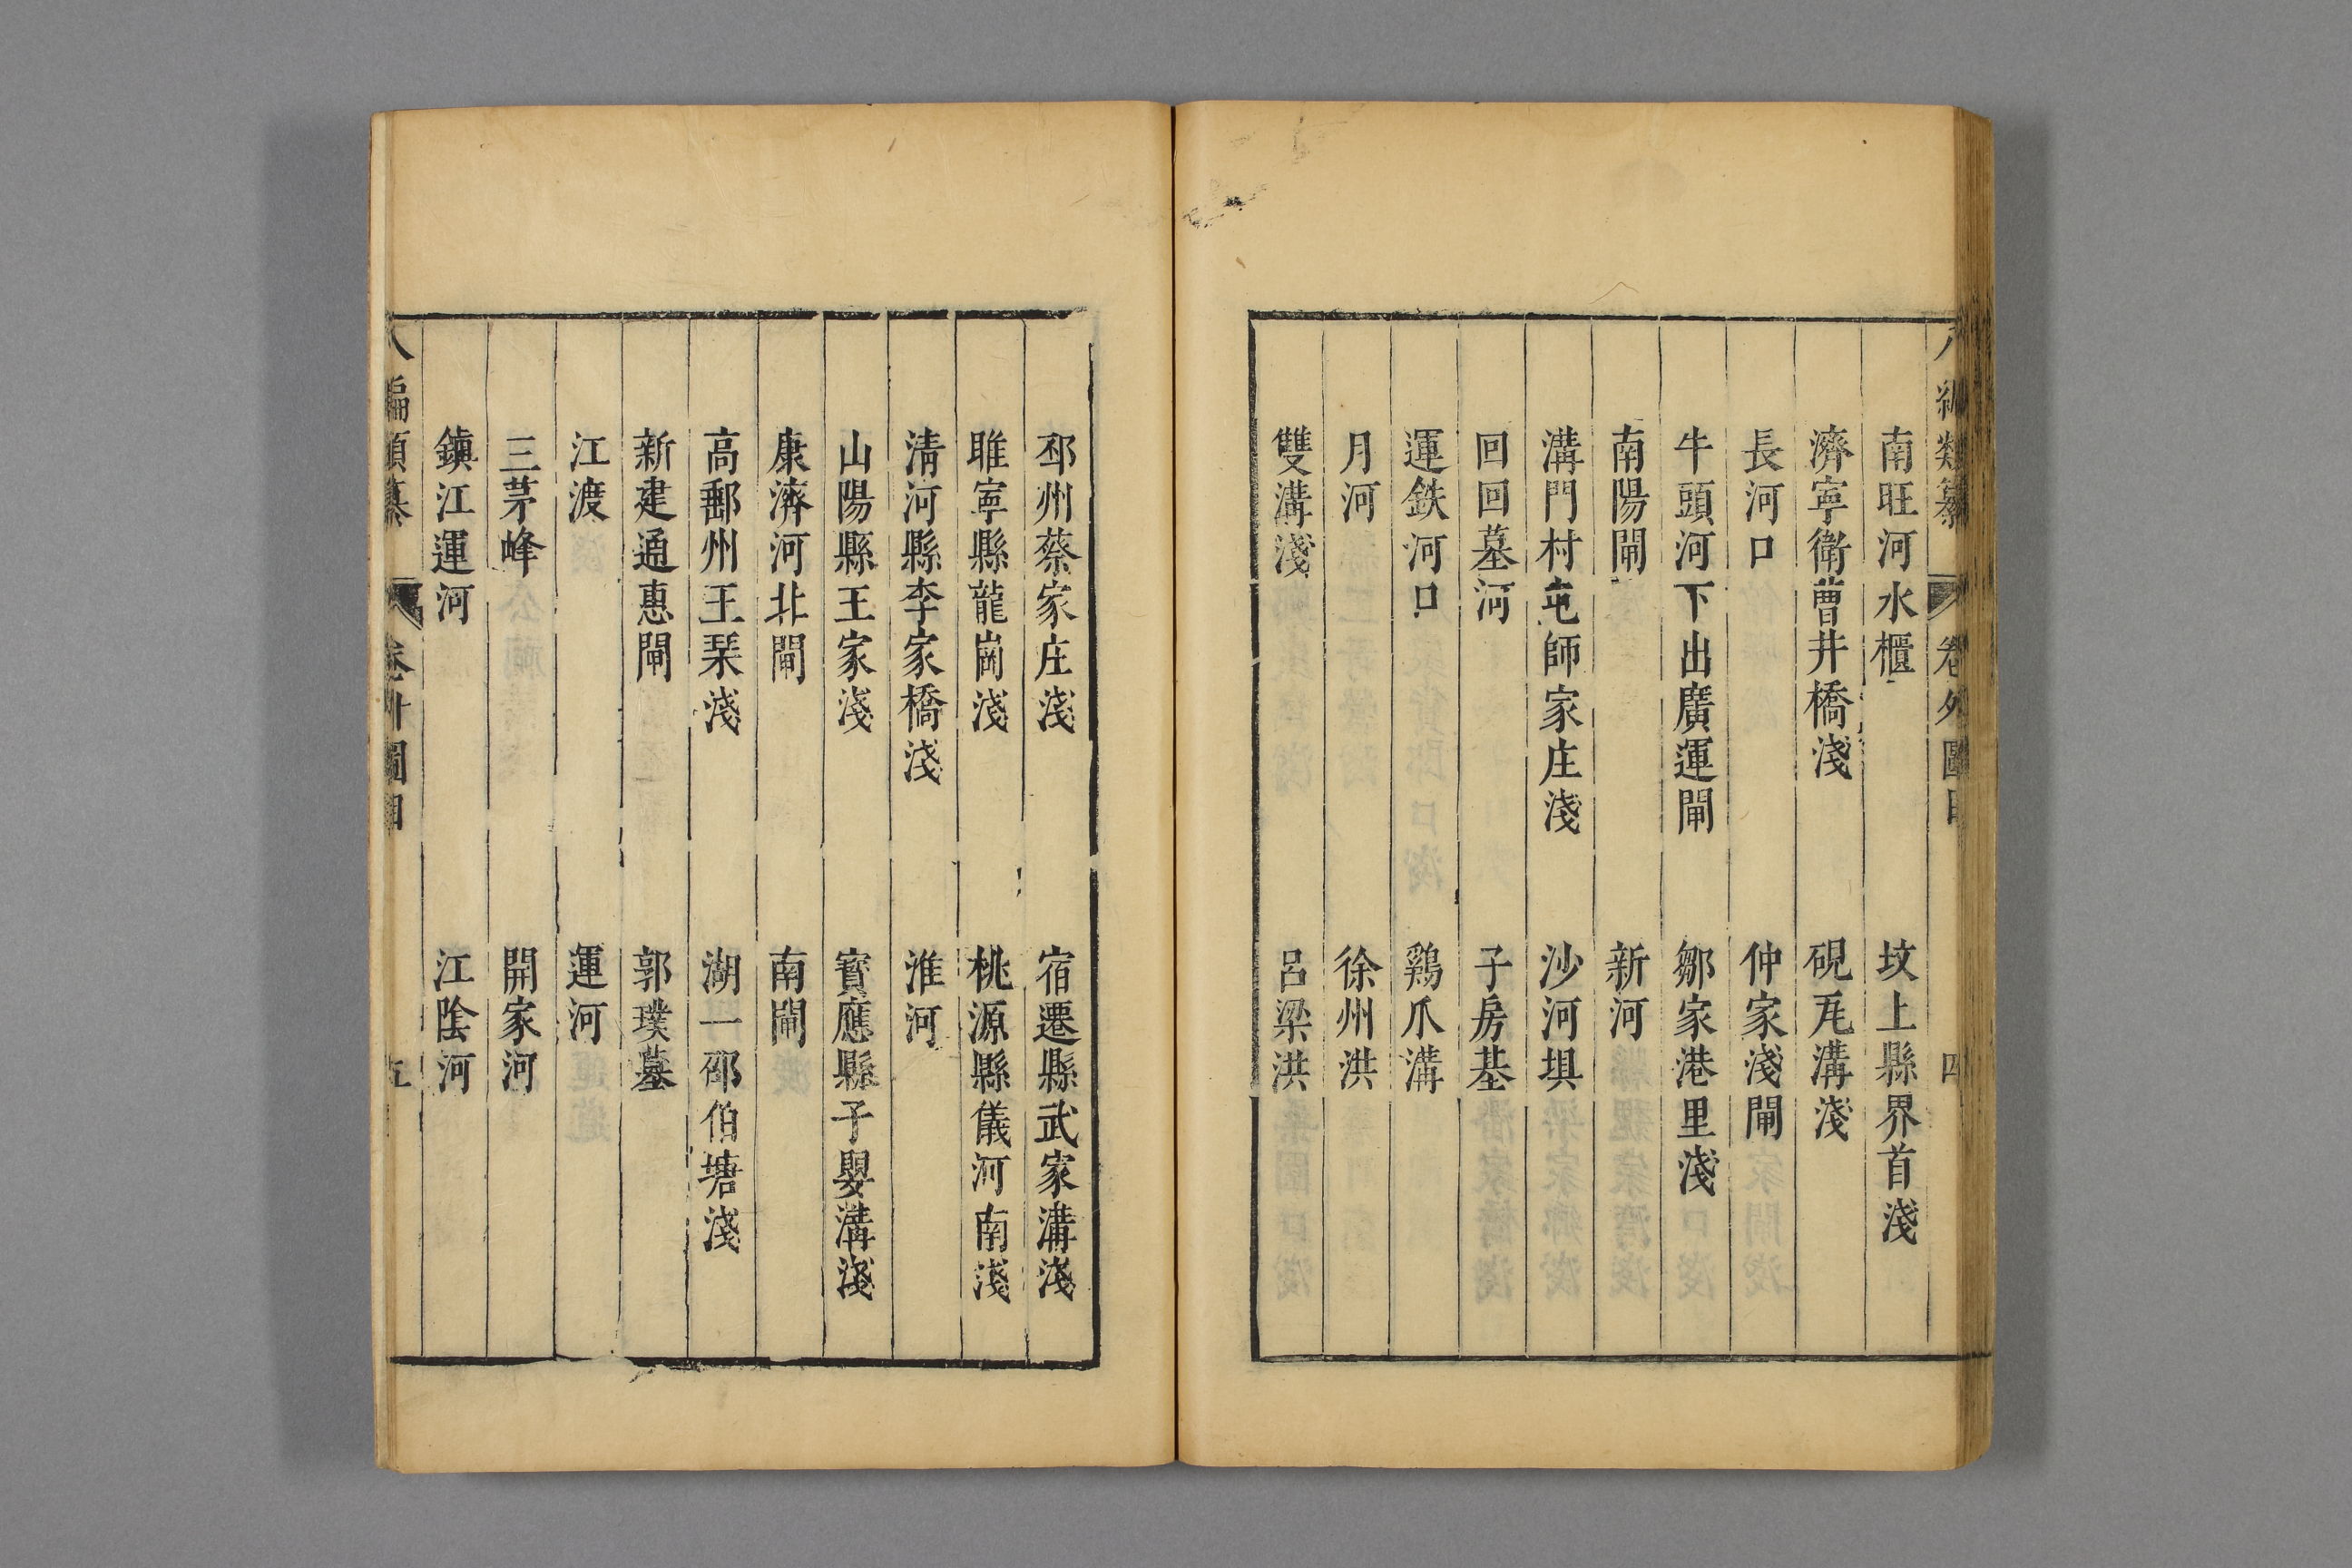 八編類纂 卷 圖目 四
南旺河水櫃 坟上縣界首淺
濟寧衛曹井橋淺 硯瓦溝淺
長河口 仲家淺閘
牛頭河下出廣運閘 鄒家港里淺
南陽閘 新河
溝門村屯師家庄淺 沙河垻
回回墓河 子房基
運鉄河口 鷄爪溝
月河 徐州洪
雙溝淺 呂梁洪
邳州蔡家庄淺 宿遷縣武家溝淺
睢寧縣龍崗淺 桃源縣儀河南淺
清河縣李家橋淺 淮河
山陽縣王家淺 寳應縣子嬰溝淺
康濟河北閘 南閘
高郵州王琹淺 湖一邵伯塘淺
新建通惠閘 郭璞墓
江渡 運河
三茅峰 開家河
鎮江運河 江陰河
八編類纂 卷 圖目 五